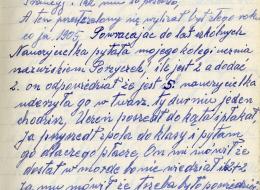 A ten przełożony wybrał był tego roku
co ja 1905. Powracając do lat szkolnych
Nauczycielka pytała mojego kolegi ucznia
nazwiskiem Pożyczek, ile jest 2 a dodać
2. on odpowiedział że jest 5 nauczycielka
uderzyła go w twarz. Ty durniu jeden
chodzisz, Uczeń poszedł do kąta i płakał,
Ja przyszedł z pola do klasy i pytam
go dlaczego płacze, On mi mówi że
dostał w mordę bo nie wiedział 2+2
Ja mu mówił że trzeba było powiedzieć